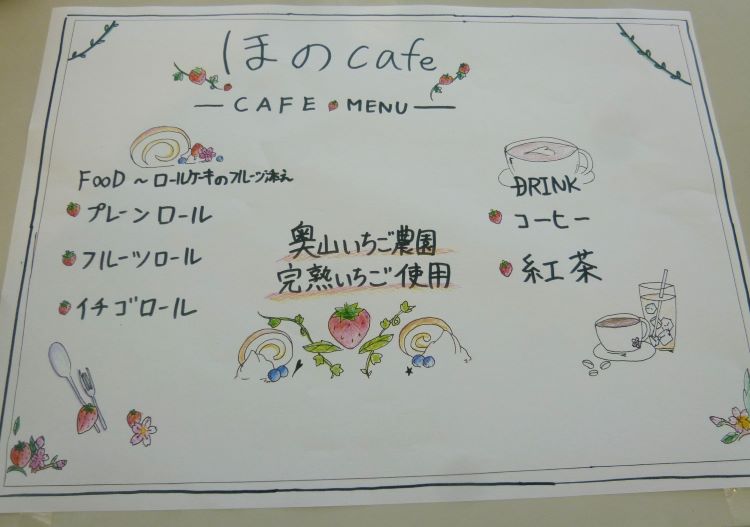 ほのcafe
CAFE MENU
FOOD ~ ロールケーキのフルーツ添え
プレーンロール
フルーツロール
イチゴロール
奥山いちご農園
完熟いちご使用
DRINK
コーヒー
紅茶